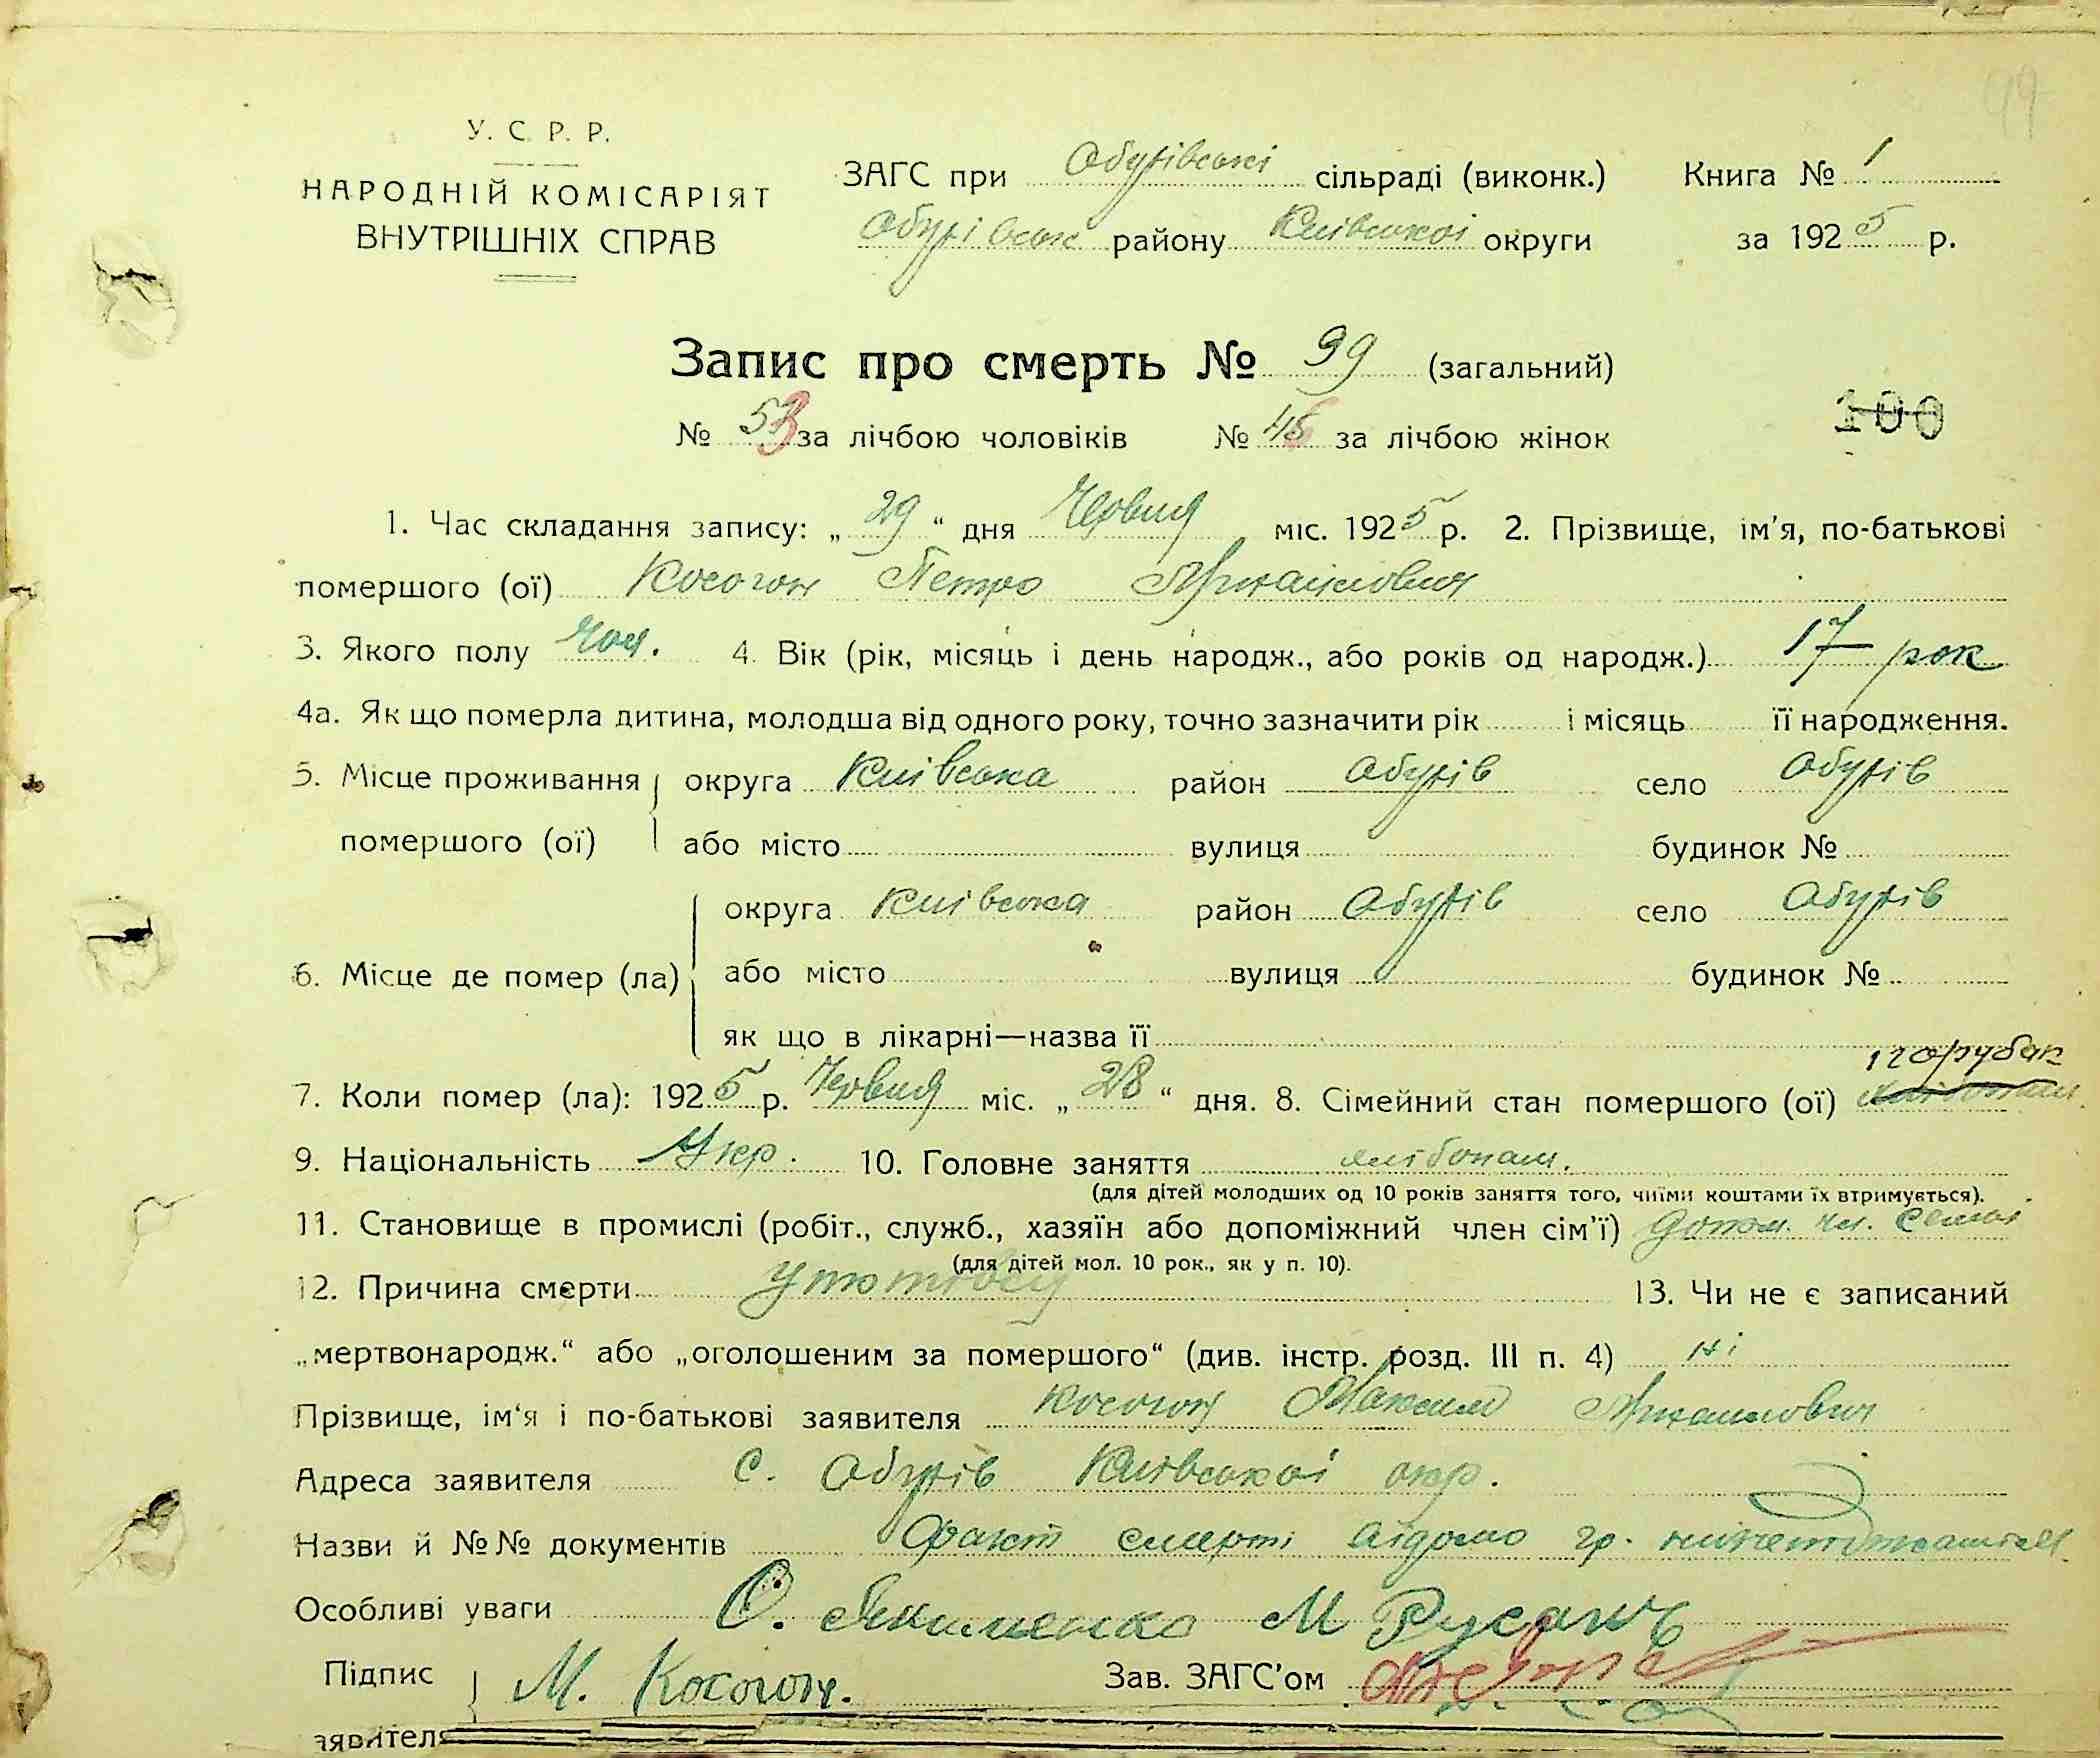 У. С. Р. Р.
НАРОДНІЙ КОМІСАРІЯТ
ВНУТРІШНІХ СПРАВ
ЗАГС при Обухівські сільраді (виконк.) Книга № 1
Обухівськ району Київської округи за 1925 р.
Запис про смерть № 99 (загальний)
№ 53 за лічбою чоловіків № 46 за лічбою жінок
100
1. Час складання запису: „29“ дня Червня міс. 1925 р. 2. Прізвище, ім'я, по-батькові
помершого (ої) Косогон Петро
3. Якого полу Чол. 4. Вік (рік, місяць і день народж., або років од народж.) 17 рок
4а. Як що померла дитина, молодша від одного року, точно зазначити рік і місяць її народження.
5. Місце проживання округа Київська район Обухів село Обухів
помершого (ої) або місто вулиця будинок №
округа Київська район Обухів село Обухів
6. Місце де помер (ла) або місто вулиця будинок №
як що в лікарні—назва її
парубок
7. Коли помер (ла): 1925 р. Червня міс. „28“ дня. 8. Сімейний стан помершого (ої)
9. Національність Укр. 10. Головне заняття хлібопаш.
(для дітей молодших од 10 років заняття того, чиїми коштами їх втримується).
11. Становище в промислі (робіт., служб., хазяїн або допоміжний член сім'ї) допом. чл. семьї
(для дітей мол. 10 рок., як у п. 10).
12. Причина смерти 13. Чи не є записаний
„мертвонародж.“ або „оголошеним за помершого“ (див. інстр. розд. III п. 4) ні
Прізвище, ім'я і по-батькові заявителя Косогон Максим
Адреса заявителя с. Обухів Київської окр.
Назви й №№ документів Факт смерті відомо гр.
Особливі уваги О. Якименко М Русанъ
Підпис М. Косогон. Зав. ЗАГС'ом
заявителя